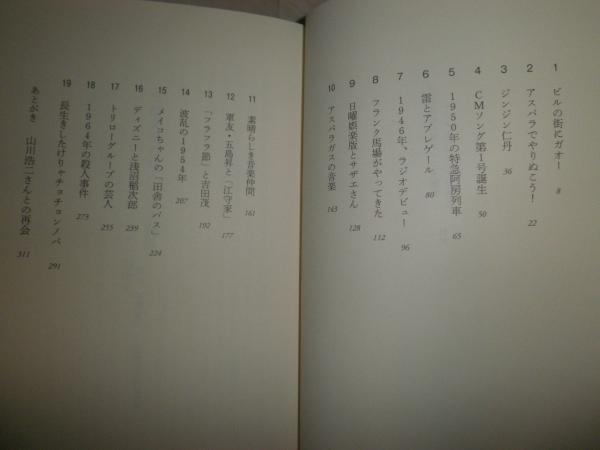 1 ビルの街にガオー 8
2 アスパラでやりぬこう! 22
3 ジンジン仁丹 36
4 CMソング第1号誕生 50
5 1950年の特急阿房列車 65
6 雷とアプレゲール 80
7 1946年、ラジオデビュー 96
8 フランク馬場がやってきた 112
9 日曜娯楽版とサザエさん 128
10 アスパラガスの音楽 143
11 素晴らしき音楽仲間 161
12 軍友・五島昇と「江守家」 177
13 「フラフラ節」と吉田茂 192
14 波乱の1954年 207
15 メイコちゃんの「田舎のバス」 224
16 ディズニーと浅沼稲次郎 239
17 トリローグループの芸人 255
18 1964年の殺人事件 273
19 長生きしたけりゃチョチョンノパ 291
あとがき 山川浩二さんとの再会 311